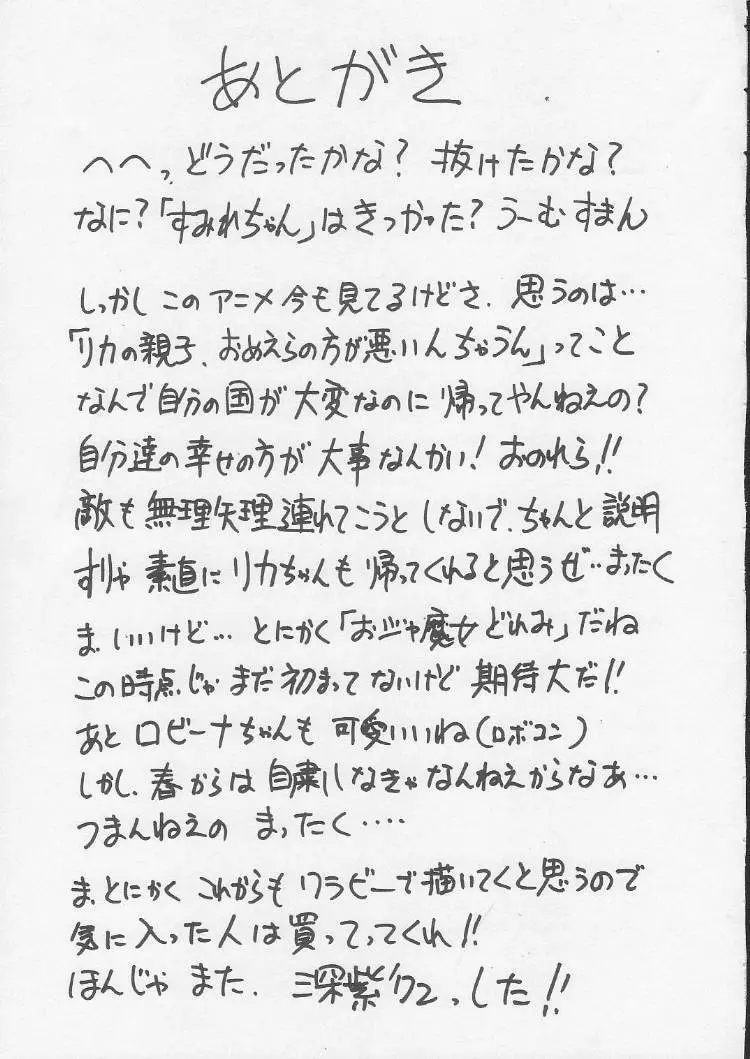 あとがき
へへっ、どうだったかな? 抜けたかな?
なに?「すみれちゃん」はきつかった? うーむすまん
しっかし このアニメ今も見てるけどさ、思うのは…
「リカの親子、おめえらの方が悪いんちゃうん」ってこと
なんで自分の国が大変なのに帰ってやんねえの?
自分達の幸せの方が大事なんかい! おのれら!!
敵も無理矢理連れてこうとしないで、ちゃんと説明
すりゃ素直にリカちゃんも帰ってくれると思うぜ…まったく
ま、いいけど… とにかく「おジャ魔女どれみ」だね
この時点じゃまだ初まってないけど期待大だ!!
あとロビーナちゃんも可愛いいね(ロボコン)
しかし、春からは自粛しなきゃなんねえからなあ…
つまんねえの まったく‥‥
ま、とにかくこれからもワラビーで描いてくと思うので
気に入った人は買ってってくれ!!
ほんじゃ また、深紫 でした!!